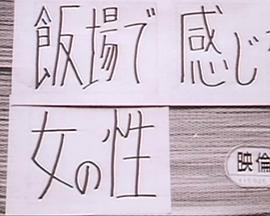 飯場で感じ
女の性
映倫